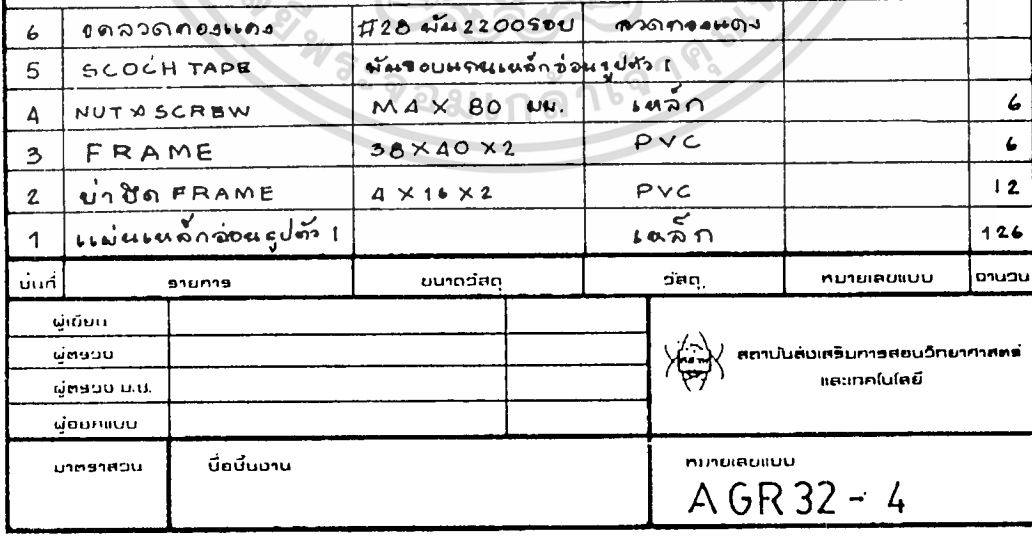 6 ขดลวดทองแดง #28 พัน 2200 รอบ ลวดทองแดง
5 SCOCH TAPE พันรอบแกนเหล็กอ่อนรูปตัว I
4 NUT & SCREW M4 X 80 มม. เหล็ก 6
3 FRAME 38X40X2 PVC 6
2 บ่ายึด FRAME 4X16X2 PVC 12
1 แผ่นเหล็กอ่อนรูปตัว I เหล็ก 126
ชิ้นที่ รายการ ขนาดวัสดุ วัสดุ หมายเลขแบบ จำนวน
ผู้เขียน
ผู้ตรวจ
ผู้ตรวจ ม.ช.
ผู้ออกแบบ
สถาบันส่งเสริมการสอนวิทยาศาสตร์
และเทคโนโลยี
มาตราส่วน ชื่อชิ้นงาน หมายเลขแบบ
AGR 32-4